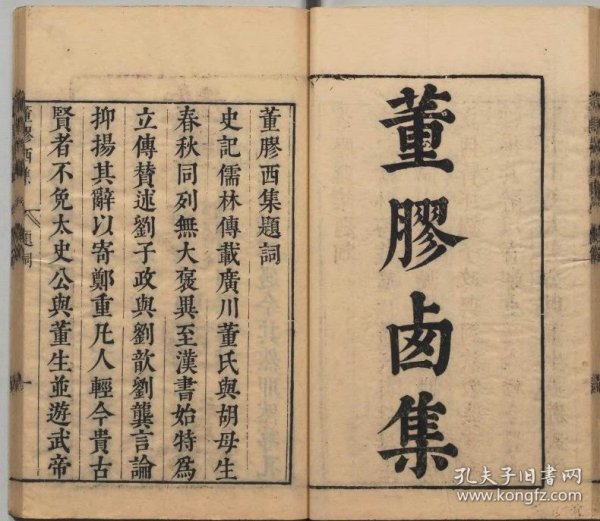 董膠卥集
董膠西集題詞
史記儒林傳載廣川董氏與胡母生
春秋同列無大褒異至漢書始特爲
立傳賛述劉子政與劉歆劉龔言論
抑揚其辭以寄鄭重凡人輕今貴古
賢者不免太史公與董生並遊武帝
董膠西集 題詞 一
孔夫子旧书网
www.kongfz.com